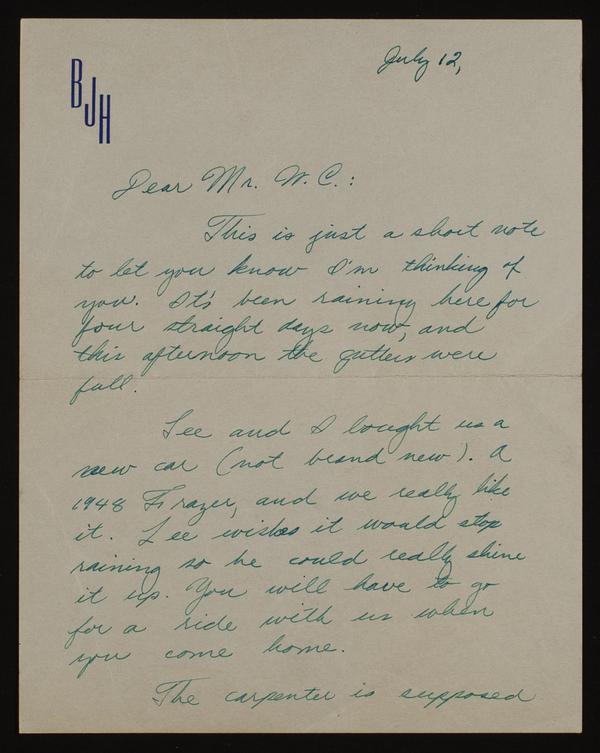 BJH
July 12,
Dear Mr. W. C.:
This is just a short note
to let you know I'm thinking of
you. It's been raining here for
four straight days now, and
this afternoon the gutters were
full.
Lee and I bought us a
new car (not brand new). A
1948 Frazer, and we really like
it. Lee wishes it would stop
raining so he could really shine
it up. You will have to go
for a ride with us when
you come home.
The carpenter is supposed